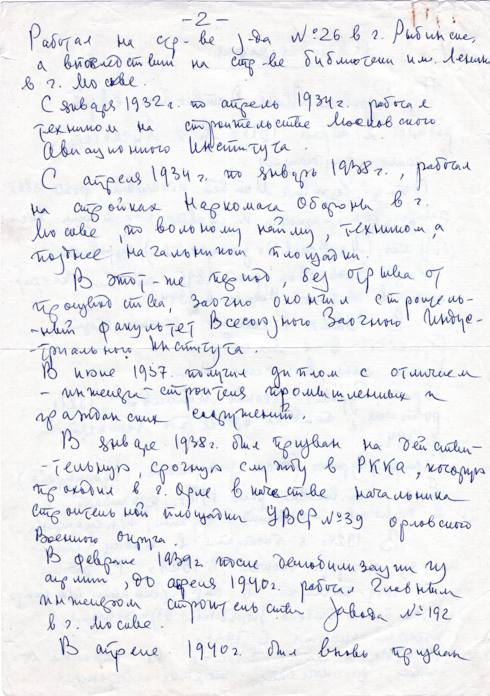 -2-
Работал на стр-ве з-да №26 в г. Рыбинске,
а впоследствии на стр-ве библиотеки им. Ленина
в г. Москве.
С января 1932г. по апрель 1934г. работал
техником на строительстве Московского
Авиационного Института.
С апреля 1934г. по январь 1938г., работал
на стройках Наркомата Обороны в г.
Москве, по вольному найму, техником, а
позднее начальником площадки.
В этот-же период, без отрыва от
производства, заочно окончил строитель-
-ный факультет Всесоюзного Заочного Индус-
-триального Института.
В июне 1937. получил диплом отличием
- инженера-строителя промышленных и
гражданских сооружений.
В январе 1938г. был призван на действи-
-тельную, срочную службу в РККА, которую
проходил в г. Орле в качестве начальника
строительной площадки УВСР №39 Орловского
Военного округа
В феврале 1939г. после демобилизации из
армии, до апреля 1940г. работал Главным
инженером строительства завода №192
в г. Москве.
В апреле 1940г. был вновь призван